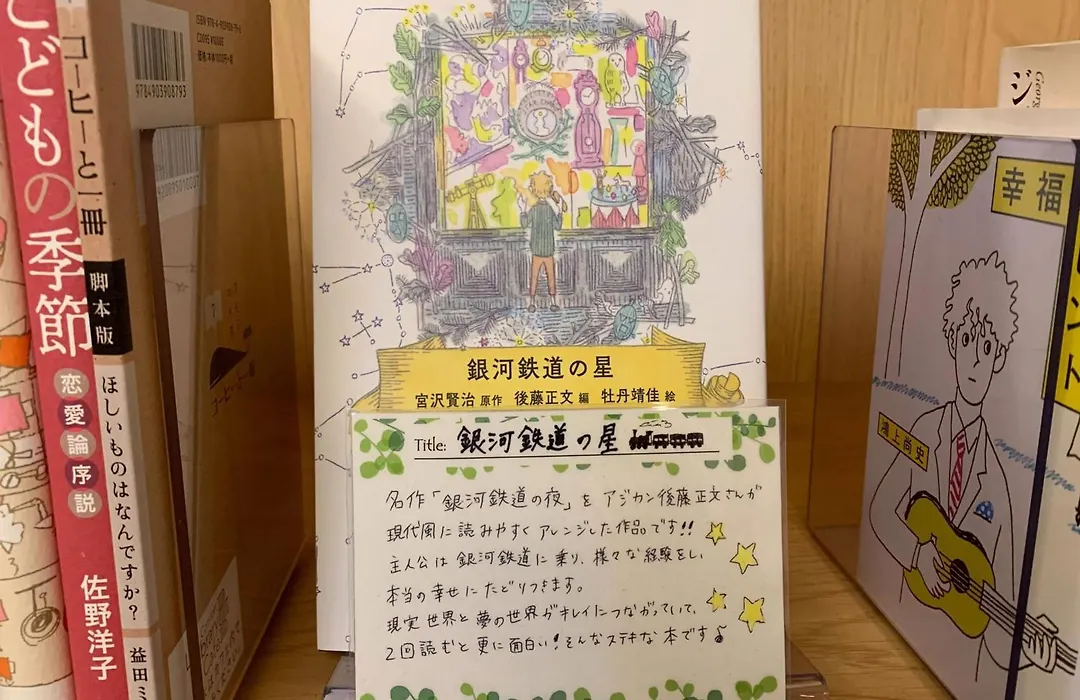 こどもの季節
恋愛論序説
佐野洋子
コーヒーと一冊
脚本版
ほしいものはなんですか?
益田ミ
9784903908793
銀河鉄道の星
宮沢賢治 原作 後藤正文 編 牡丹靖佳 絵
Title: 銀河鉄道の星
名作「銀河鉄道の夜」を アジカン後藤正文さんが
現代風に読みやすく アレンジした作品です!!
主人公は 銀河鉄道に乗り、様々な経験をし
本当の幸せにたどりつきます。
現実世界と夢の世界がキレイにつながっていて、
2回読むと更に面白い!そんなステキな本です♪
幸福
鴻上尚史
ント
ジ